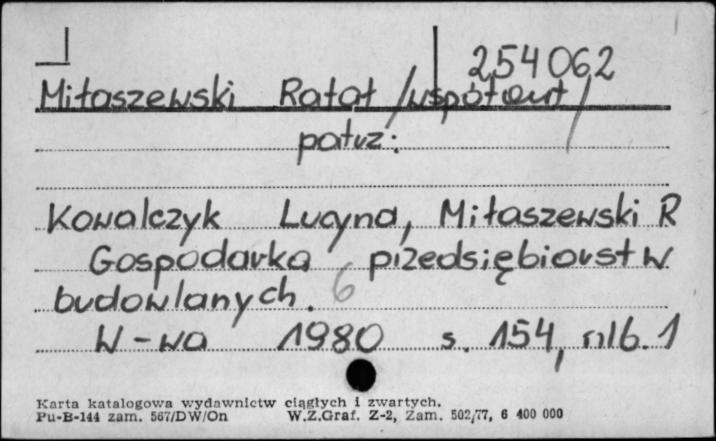 254062
Miłaszewski Rafał /współaut/
patrz:
Kowalczyk Lucyna, Miłaszewski R
Gospodarka przedsiębiorstw
budowlanych. 6
W-wa 1980 s. 154, nlb. 1
Karta katalogowa wydawnictw ciągłych i zwartych.
Pu-B-144 zam. 567/DW/On W.Z.Graf. Z-2, Zam. 502/77, 6 400 000